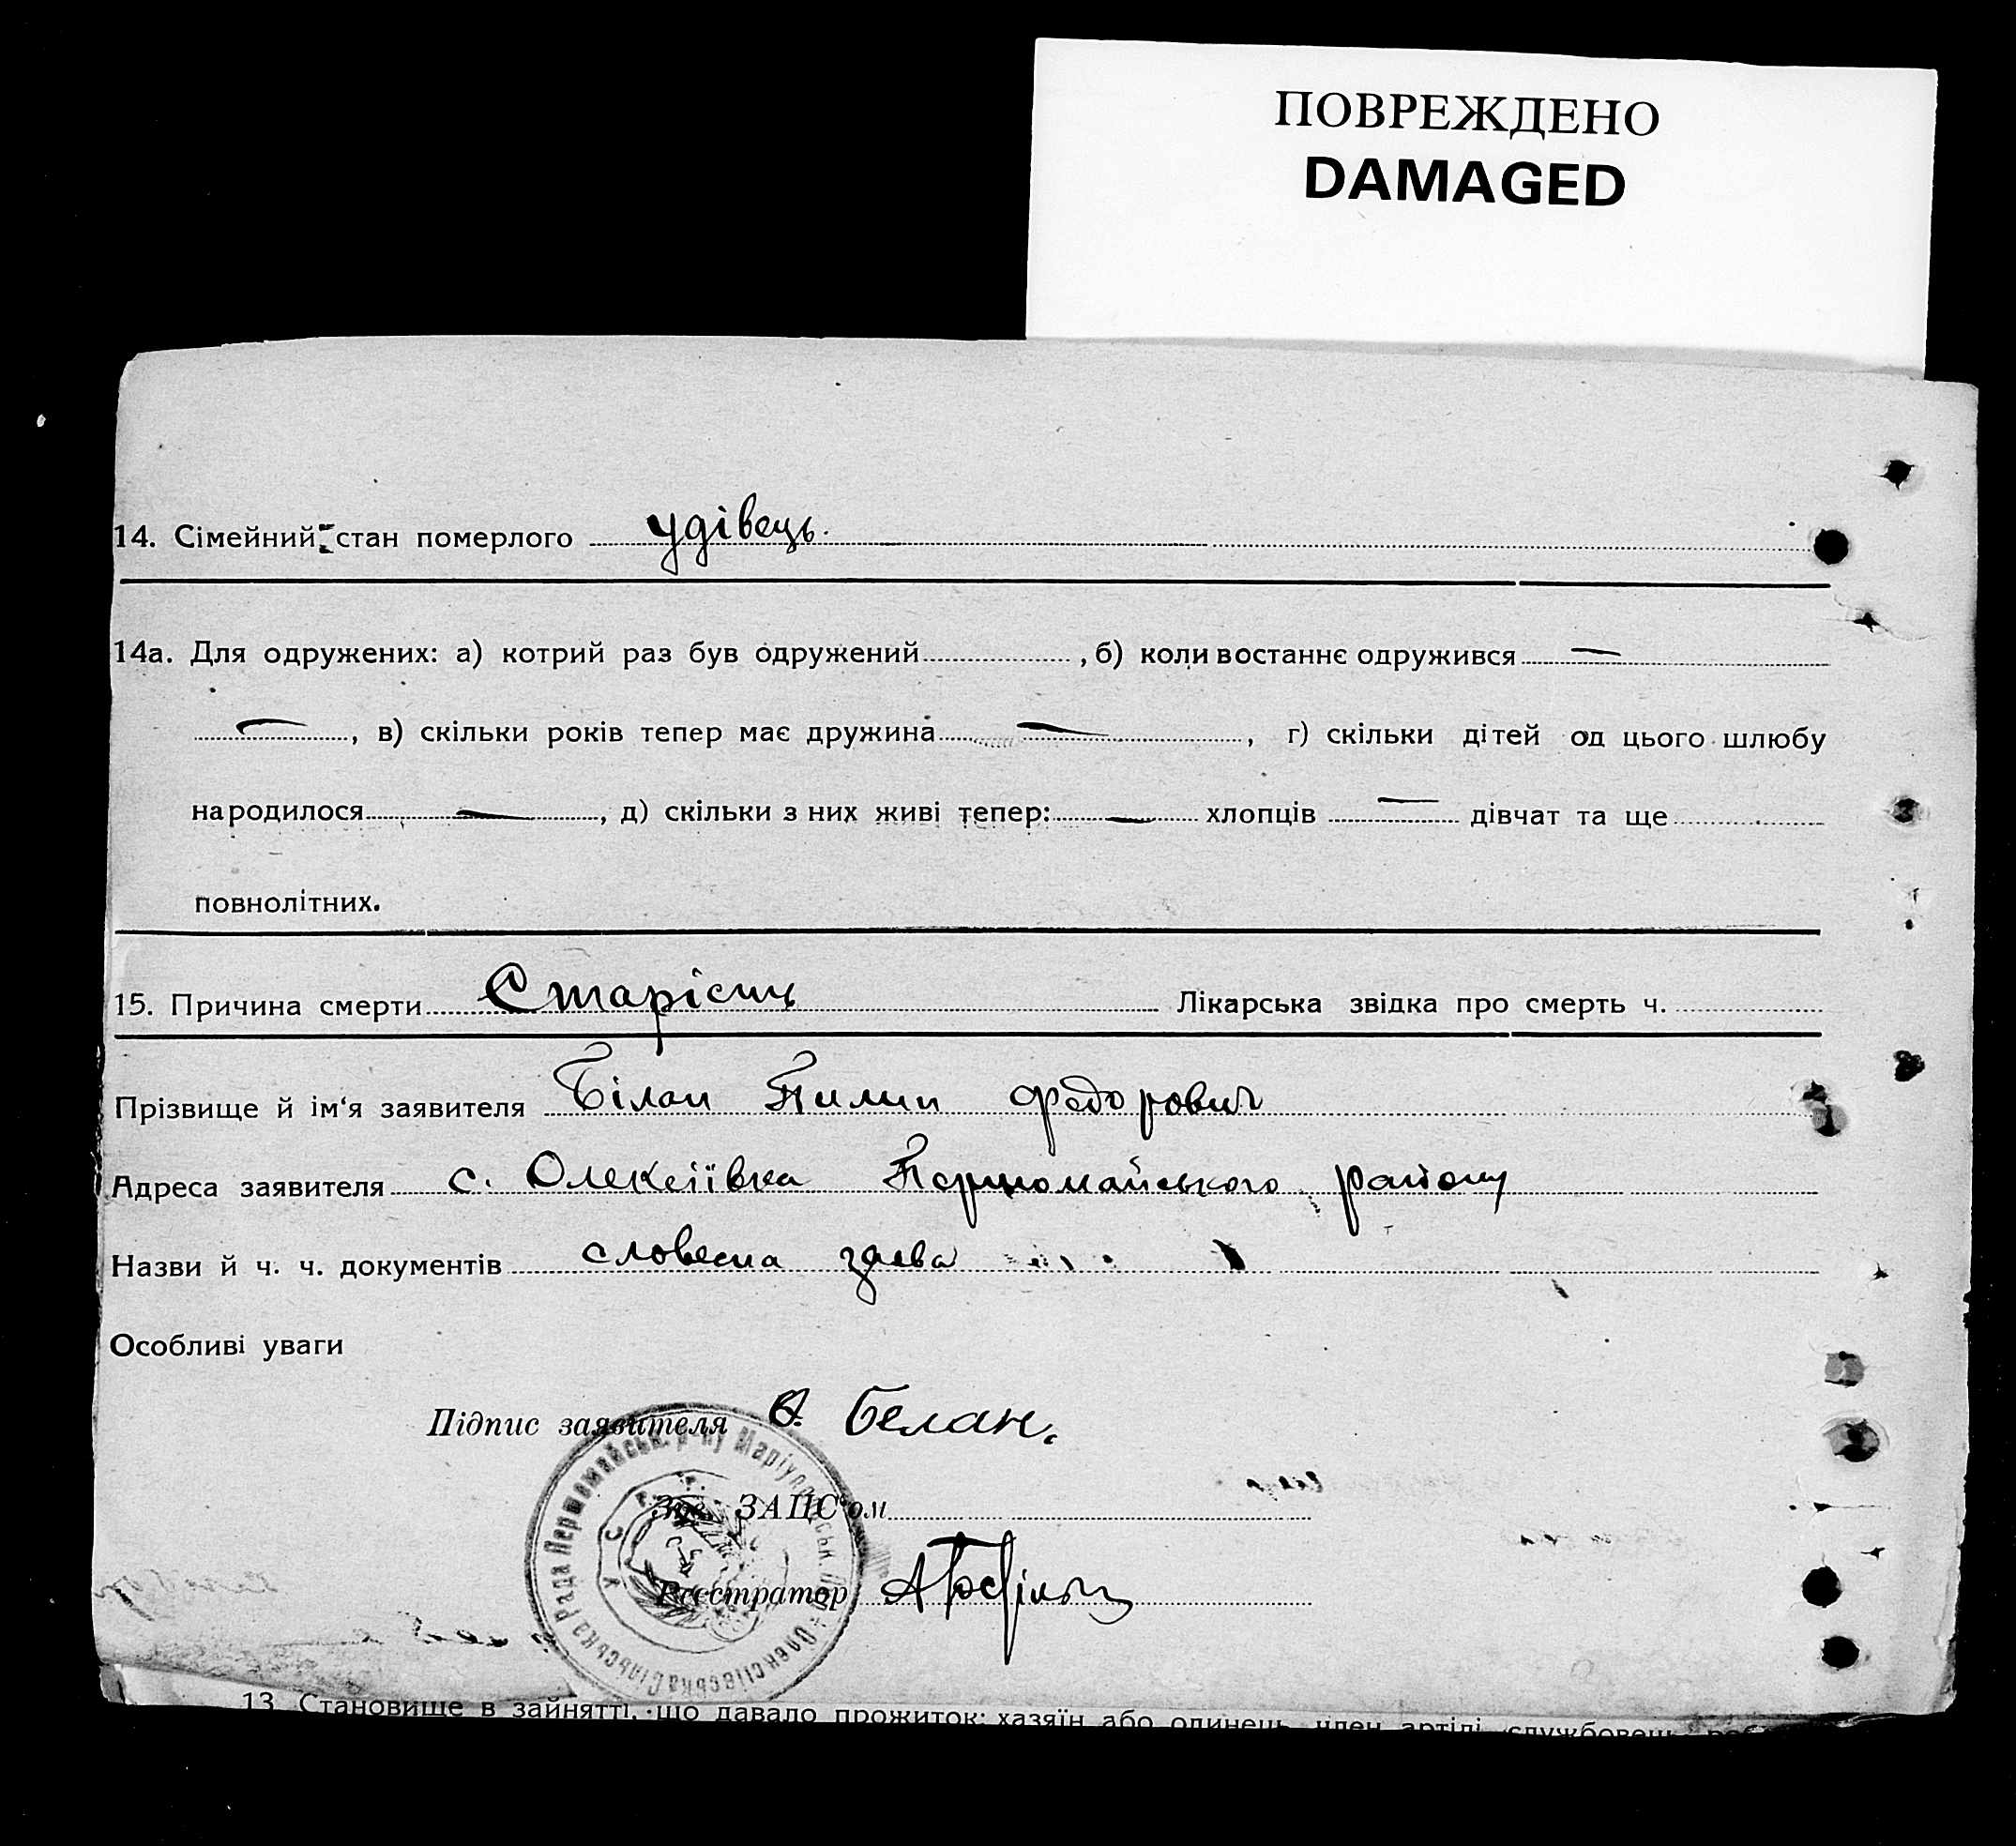 ПОВРЕЖДЕНО
DAMAGED
14. Сімейний стан померлого удівець.
14а. Для одружених: а) котрий раз був одружений , б) коли востаннє одружився —
— , в) скільки років тепер має дружина — , г) скільки дітей од цього шлюбу
народилося — , д) скільки з них живі тепер: — хлопців — дівчат та ще
повнолітних.
15. Причина смерти Старість Лікарська звідка про смерть ч.
Прізвище й ім‘я заявителя Білан Пилип Федорович
Адреса заявителя с. Олексіївка Першомайського району
Назви й ч. ч. документів словесна заява
Особливі уваги
Підпис заявителя Белан.
Зав. ЗАЦС‘ом
Реєстратор
Олексіївська Сільська Рада Першомайськ. р-ну Маріупольськ.
У. С. Р. Р.
13. Становище в зайнятті, що давало прожиток: хазяїн або одинець, член артілі, службовець,